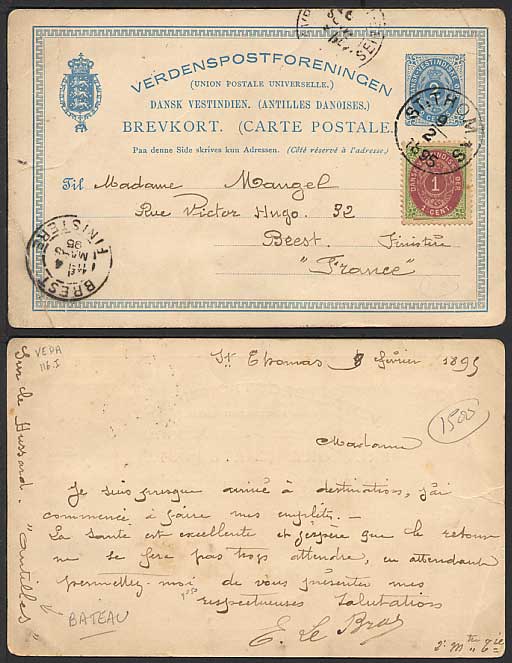 VERDENSPOSTFORENINGEN
(UNION POSTALE UNIVERSELLE.)
DANSK VESTINDIEN. (ANTILLES DANOISES.)
BREVKORT. (CARTE POSTALE.)
Paa denne Side skrives kun Adressen. (Côté réservé à l'adresse.)
ST: THOMAS
9/2
1895
1
1 CENT.
Til Madame Mangel
Rue Victor Hugo. 32
Brest. Finistère
"France"
BREST
4
MARS
95
FINISTERE
VEDA
116.I
St Thomas 8 février 1895
1500
Madame
Je suis presque arrivé à destination, j'ai
commencé à faire mes emplettes. —
La santé est excellente et j'espère que le retour
ne se fera pas trop attendre, en attendant
permettez-moi de vous présenter mes
respectueuses salutations
E. Le Bras
de Hussard. "Antilles"
BATEAU